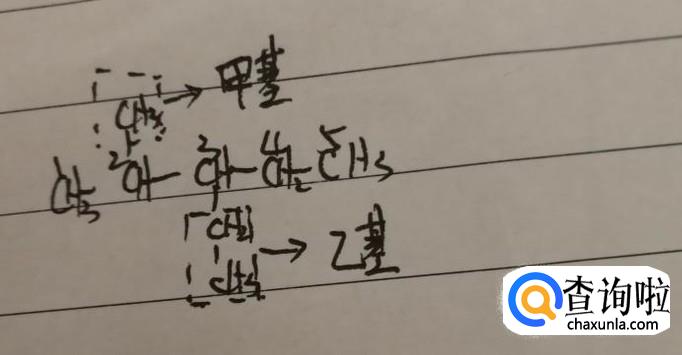 CH3 → 甲基
1 2 3 4 5
CH3 CH — CH — CH2 CH3
CH2
CH3 → 乙基
查询啦
chaxunla.com